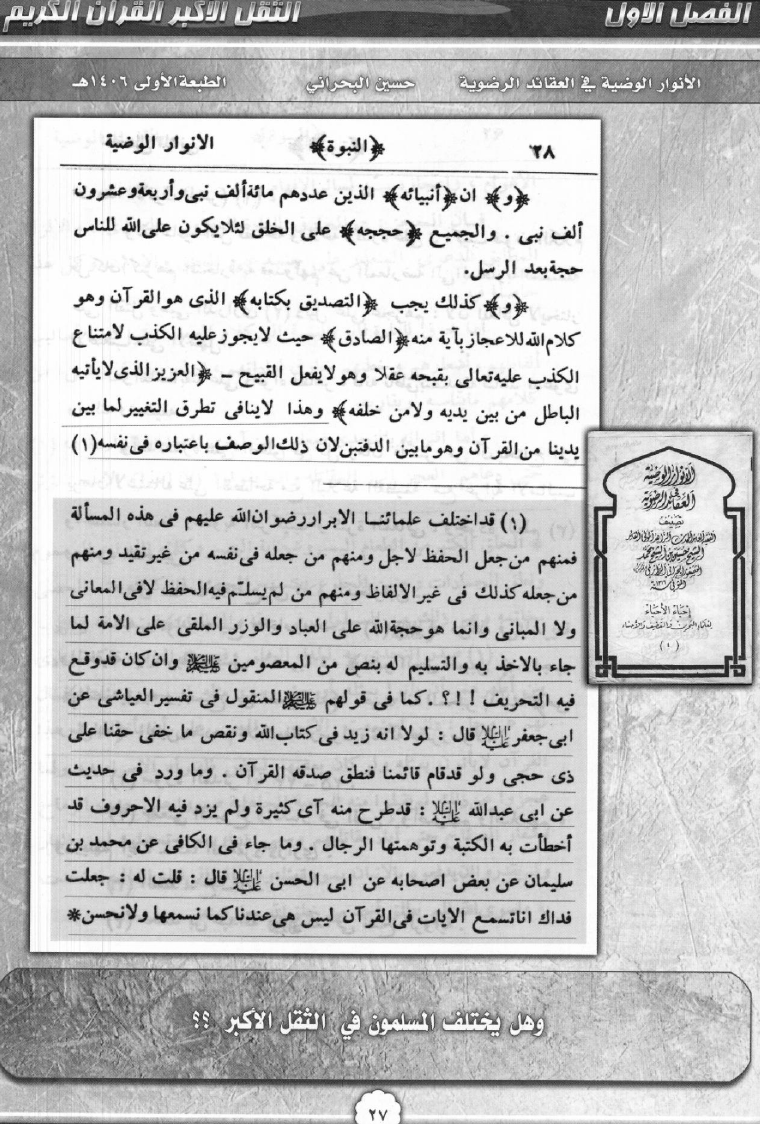 الفصل الاول
الثقل الاكبر القرآن الكريم
الأنوار الوضية في العقائد الرضوية حسين البحراني الطبعة الأولى ١٤٠٦هـ
٢٨ ﴿النبوة﴾ الانوار الوضية
﴿و﴾ ان ﴿أنبيائه﴾ الذين عددهم مائة ألف نبى وأربعة وعشرون
ألف نبى . والجميع ﴿حججه﴾ على الخلق لئلا يكون على الله للناس
حجة بعد الرسل.
﴿و﴾ كذلك يجب ﴿التصديق بكتابه﴾ الذى هو القرآن وهو
كلام الله للاعجاز بآية منه ﴿الصادق﴾ حيث لا يجوز عليه الكذب لامتناع
الكذب عليه تعالى بقبحه عقلا وهو لا يفعل القبيح – ﴿العزيز الذى لا يأتيه
الباطل من بين يديه ولا من خلفه﴾ وهذا لا ينافى تطرق التغيير لما بين
يدينا من القرآن وهو ما بين الدفتين لان ذلك الوصف باعتباره فى نفسه (١)
(١) قد اختلف علمائنا الابرار رضوان الله عليهم فى هذه المسألة
فمنهم من جعل الحفظ لاجل ومنهم من جعله فى نفسه من غير تقيد ومنهم
من جعله كذلك فى غير الالفاظ ومنهم من لم يسلّم فيه الحفظ لا فى المعانى
ولا المبانى وانما هو حجة الله على العباد والوزر الملقى على الامة لما
جاء بالاخذ به والتسليم له بنص من المعصومين عليهم السلام وان كان قد وقع
فيه التحريف ! !؟ . كما فى قولهم عليهم السلام المنقول فى تفسير العياشى عن
ابى جعفر عليه السلام قال : لولا انه زيد فى كتاب الله ونقص ما خفى حقنا على
ذى حجى ولو قد قام قائمنا فنطق صدقه القرآن . وما ورد فى حديث
عن ابى عبد الله عليه السلام : قد طرح منه آى كثيرة ولم يزد فيه الا حروف قد
أخطأت به الكتبة وتوهمتها الرجال . وما جاء فى الكافى عن محمد بن
سليمان عن بعض اصحابه عن ابى الحسن عليه السلام قال : قلت له : جعلت
فداك انا نسمع الايات فى القرآن ليس هى عندنا كما نسمعها ولا نحسن*
الأنوار الوضية
في
العقائد الرضوية
تصنيف
الشيخ حسين بن الشيخ محمد
إحياء الأحياء
(٤)
وهل يختلف المسلمون في الثقل الأكبر ؟؟
٢٧